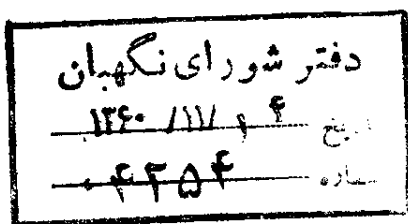 دفتر شورای نگهبان
تاریخ ۱۳۶۰/۱۱/۰۴
شماره ۴۳۵۴